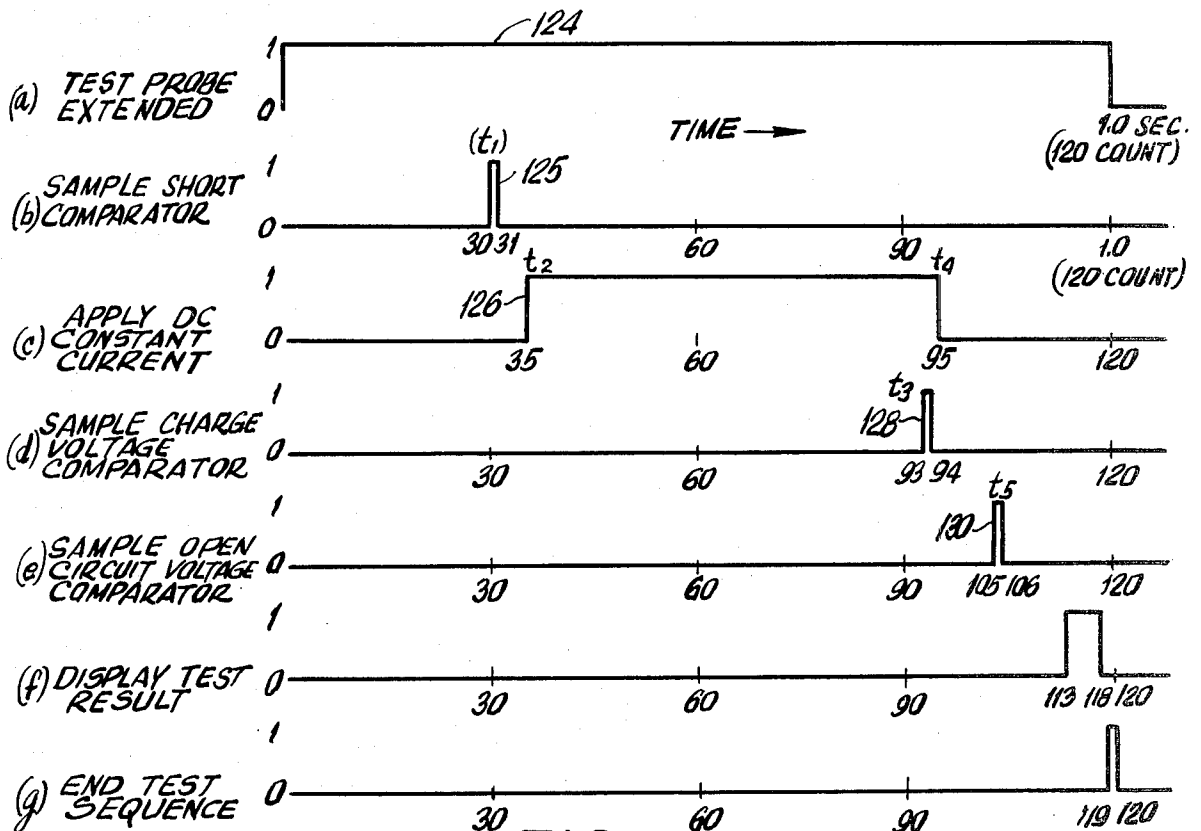 124
1
(a) TEST PROBE
EXTENDED
0
TIME
1.0 SEC.
(120 COUNT)
(t1)
1
125
(b) SAMPLE SHORT
COMPARATOR
0
30 31 60 90 1.0
(120 COUNT)
t2 t4
1
126
(c) APPLY DC
CONSTANT
CURRENT
0
35 60 95 120
t3
1
128
(d) SAMPLE CHARGE
VOLTAGE
COMPARATOR
0
30 60 93 94 120
t5
1
130
(e) SAMPLE OPEN
CIRCUIT VOLTAGE
COMPARATOR
0
30 60 90 105 106 120
1
(f) DISPLAY TEST
RESULT
0
30 60 90 113 118 120
1
(g) END TEST
SEQUENCE
0
30 60 90 119 120